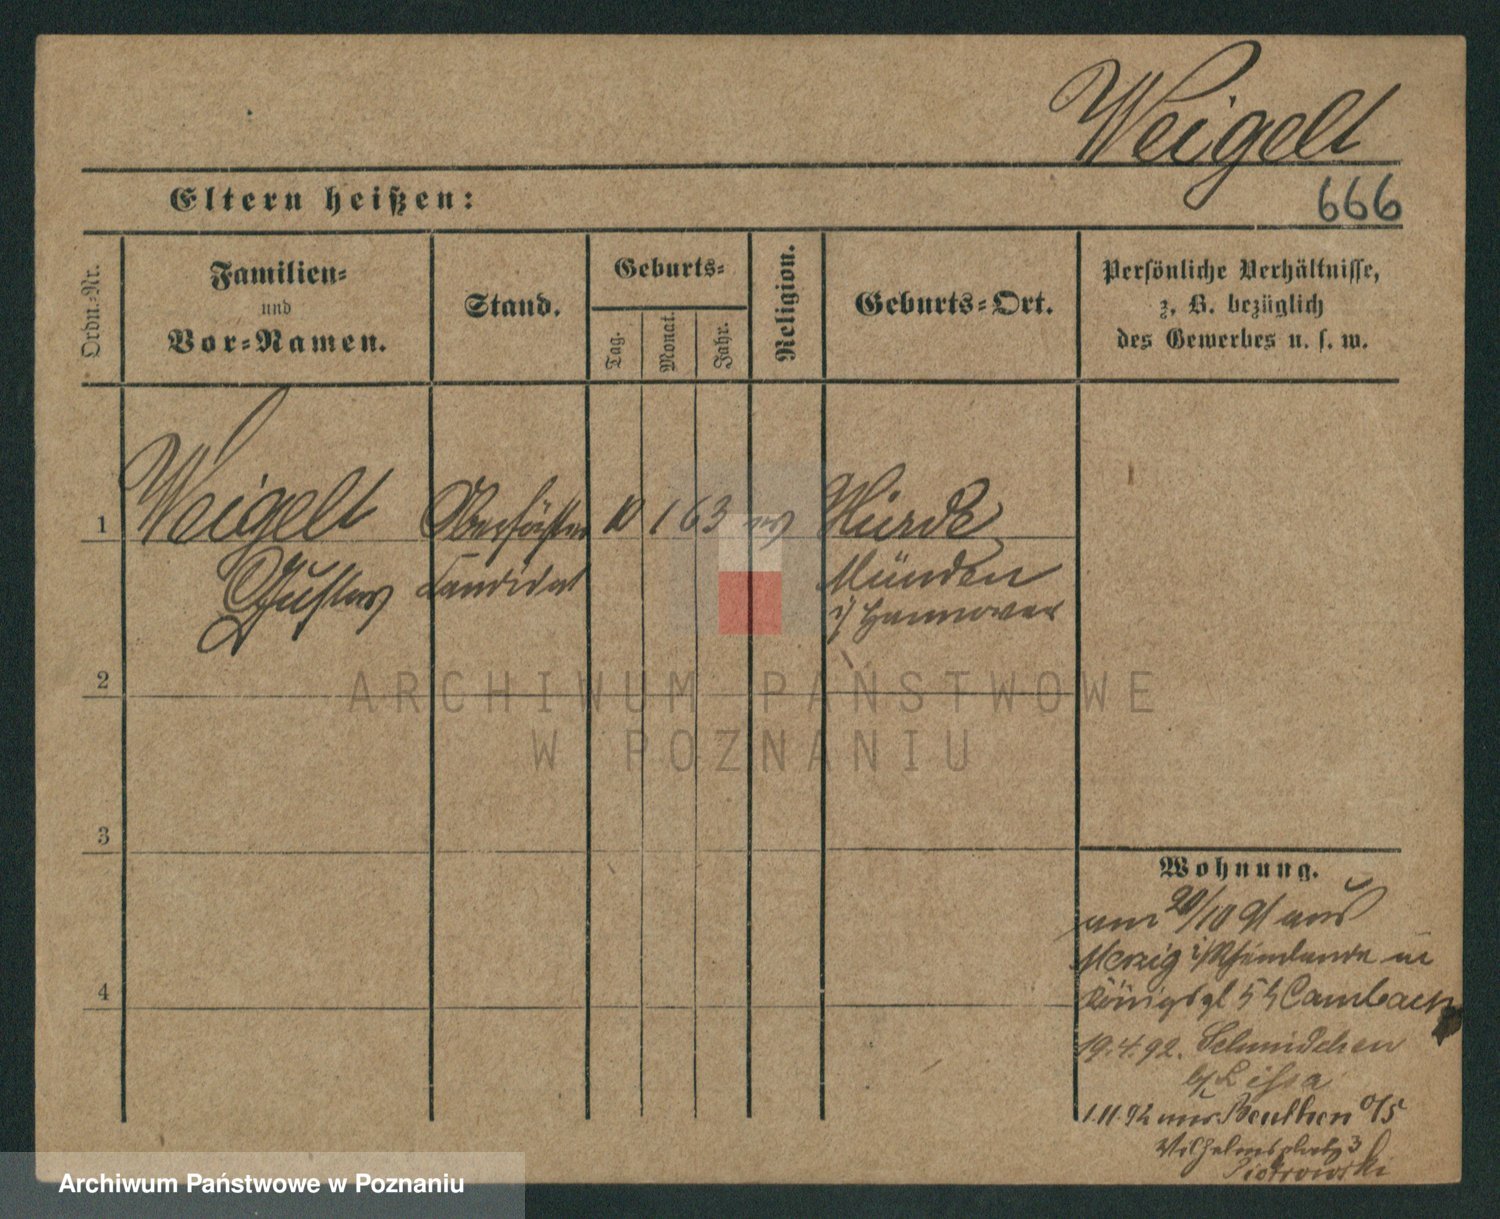 Weigelt
Eltern heißen:
666
Ordn.-Nr.
Familien-
und
Vor-Namen.
Stand.
Geburts-
Tag.
Monat.
Jahr.
Religion.
Geburts-Ort.
Persönliche Verhältnisse,
z. B. bezüglich
des Gewerbes u. s. w.
1
Weigelt
Gustav
Oberförster
Candidat
10
1
63
ev
Münden
i/ Hannover
2
3
4
Wohnung.
am 20/10 91 aus
Merzig i/ Rheinlande in
Königspl 5 b Cambach
19.4.92. Schmidchen
b/ Lissa
1.11.92 aus Beuthen O/S
Wilhelmsplatz 3
Piotrowski
ARCHIWUM PAŃSTWOWE
W POZNANIU
Archiwum Państwowe w Poznaniu